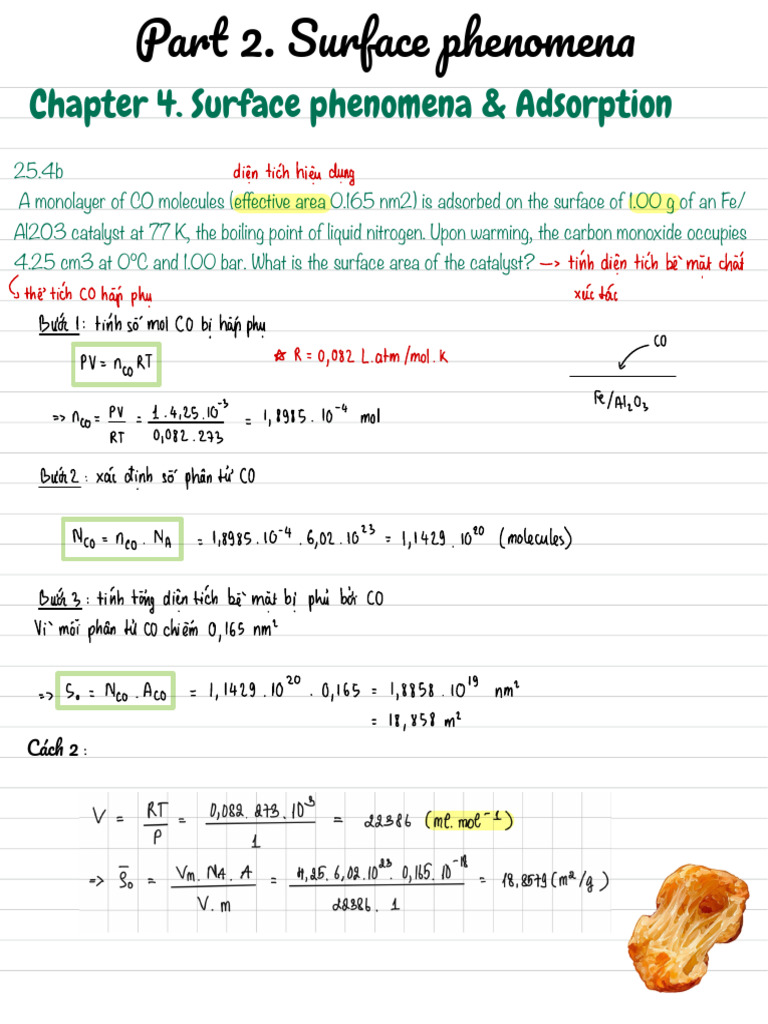 Part 2. Surface phenomena
Chapter 4. Surface phenomena & Adsorption
25.4b
diện tích hiệu dụng
A monolayer of CO molecules (effective area 0.165 nm2) is adsorbed on the surface of 1.00 g of an Fe/
Al2O3 catalyst at 77 K, the boiling point of liquid nitrogen. Upon warming, the carbon monoxide occupies
4.25 cm3 at 0°C and 1.00 bar. What is the surface area of the catalyst? → tính diện tích bề mặt chất
xúc tác
↳ thể tích CO hấp phụ
Bước 1: tính số mol CO bị hấp phụ
PV = nCO RT
* R = 0,082 L.atm/mol.K
CO
Fe/Al₂O₃
=> nCO = PV/RT = 1.4,25.10⁻³/0,082.273 = 1,8985.10⁻⁴ mol
Bước 2: xác định số phân tử CO
NCO = nCO . NA = 1,8985.10⁻⁴ . 6,02.10²³ = 1,1429.10²⁰ (molecules)
Bước 3: tính tổng diện tích bề mặt bị phủ bởi CO
Vì mỗi phân tử CO chiếm 0,165 nm²
=> S₀ = NCO . ACO = 1,1429.10²⁰ . 0,165 = 1,8858.10¹⁹ nm²
= 18,858 m²
Cách 2 :
V = RT/P = 0,082.273.10³/1 = 22386 (ml.mol⁻¹)
=> S̄₀ = Vm.NA.A/V.m = 4,25.6,02.10²³.0,165.10⁻¹⁸/22386.1 = 18,8579 (m²/g)